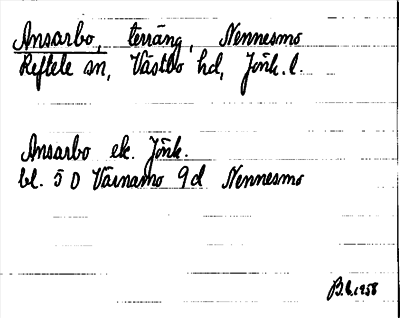 Ansarbo, terräng, Nennesmo
Reftele sn, Västbo hd, Jönk. l.
Ansarbo ek. Jönk.
bl. 5 D Värnamo 9d Nennesmo
1958